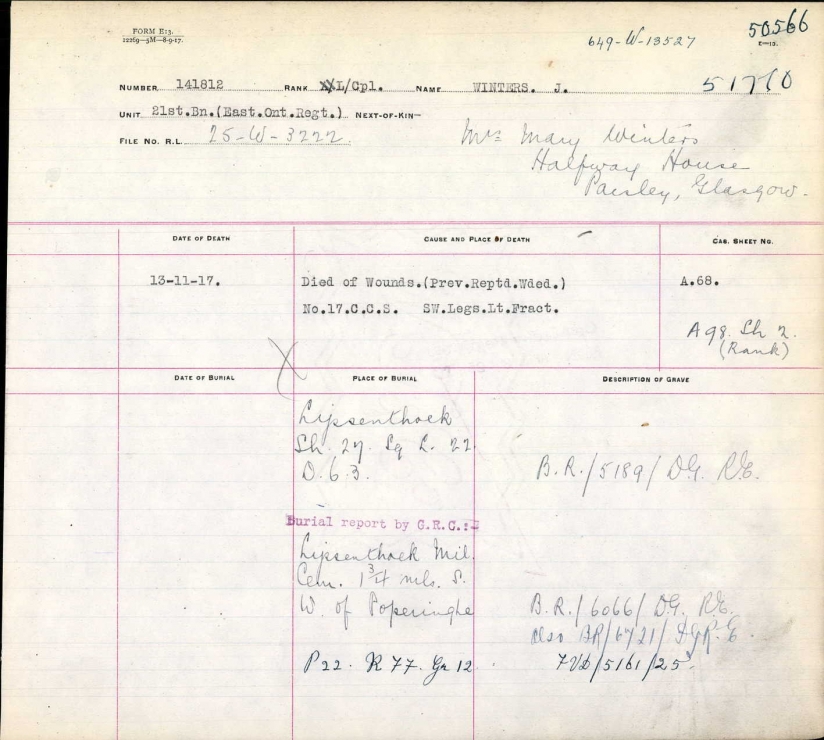 FORM E:3.
12269-5M-8-9-17.
649-W-13527
50566
E-13.
NUMBER 141812 RANK L/Cpl. NAME WINTERS. J. 51770
UNIT 21st.Bn.(East.Ont.Regt.) NEXT-OF-KIN-
FILE NO. R.L. 25-W-3222
Mrs Mary Winters
Halfway House
Paisley, Glasgow.
DATE OF DEATH CAUSE AND PLACE OF DEATH CAS. SHEET NO.
13-11-17. Died of Wounds.(Prev.Reptd.Wded.) A.68.
No.17.C.C.S. SW.Legs.Lt.Fract.
A 98. Sh 2.
(Rank)
DATE OF BURIAL PLACE OF BURIAL DESCRIPTION OF GRAVE
Lijssenthoek
Sh. 27. Sq L. 22
D. 6. 3. B.R./5189/ D.G. R.E.
Burial report by G.R.C.:-
Lijssenthoek Mil.
Cem. 1 3/4 mls. S.
W. of Poperinghe B.R./6066/ D.G. R.E.
also BR/6721/ D.G.R.E
P 22. R 77. Gr 12 7VD/5161/25.